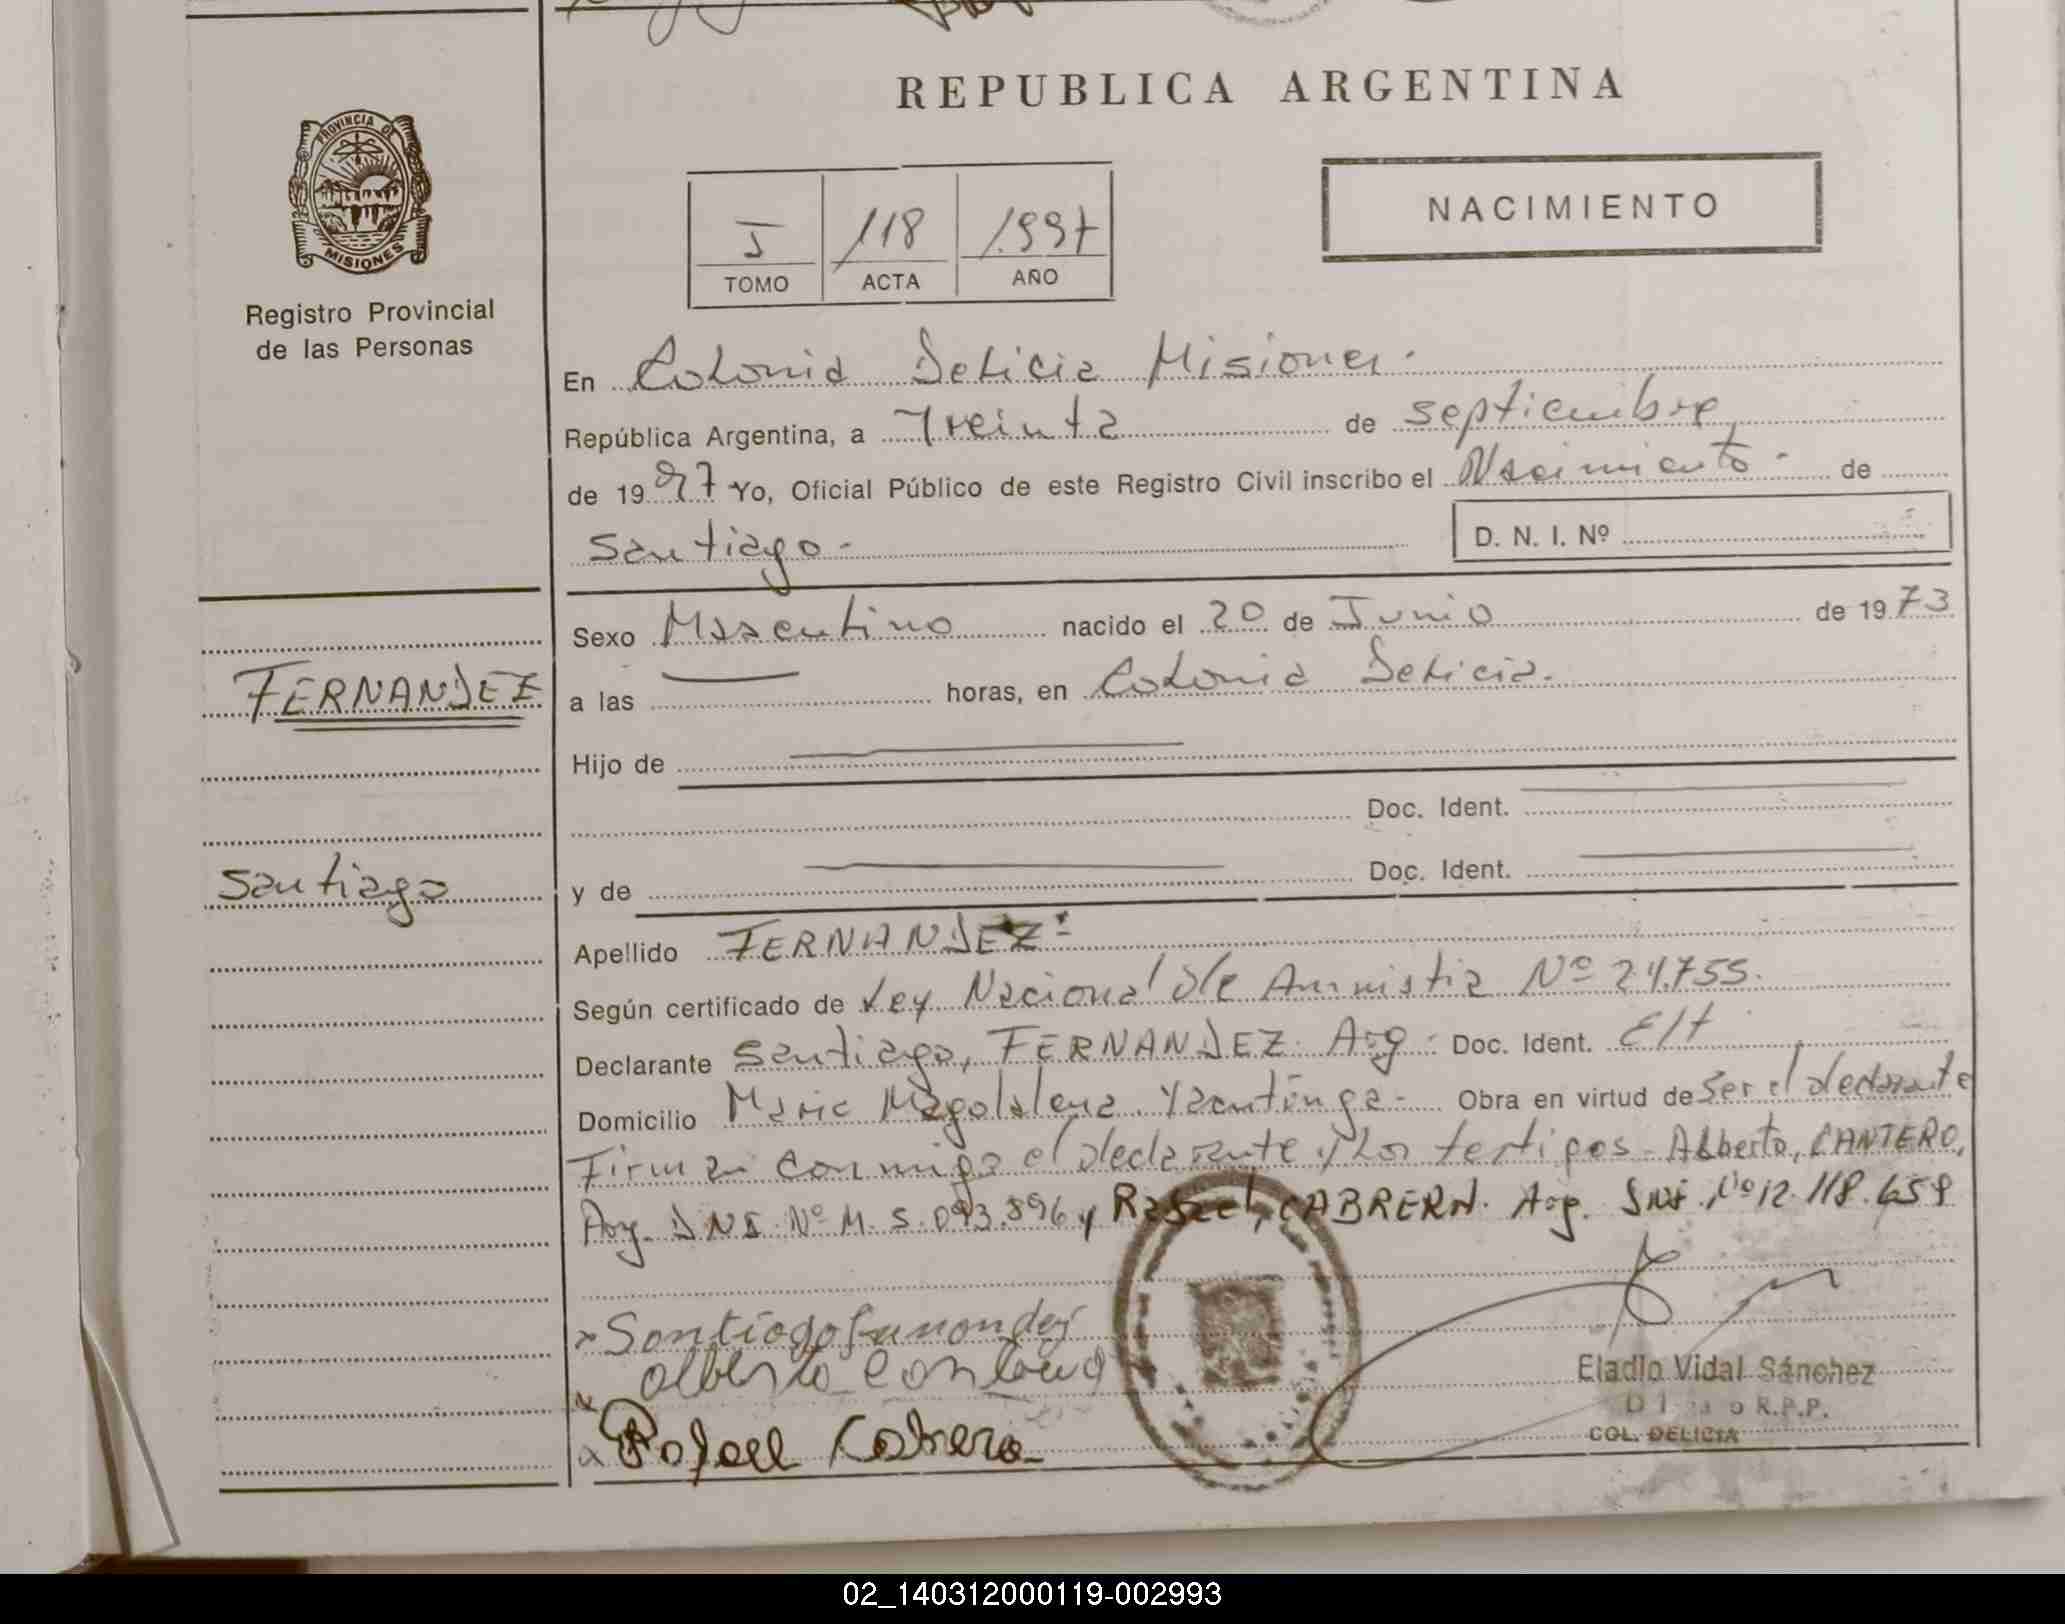 REPUBLICA ARGENTINA
PROVINCIA DE MISIONES
Registro Provincial
de las Personas
I 118 1997
TOMO ACTA AÑO
NACIMIENTO
En Colonia Delicia Misiones.
República Argentina, a Treinta de septiembre
de 1997 Yo, Oficial Público de este Registro Civil inscribo el Nacimiento de
Santiago
D. N. I. Nº
FERNANDEZ
Santiago
Sexo Masculino nacido el 20 de Junio de 1973
a las horas, en Colonia Delicia.
Hijo de
Doc. Ident.
y de Doc. Ident.
Apellido FERNANDEZ
Según certificado de Ley Nacional de Amnistia Nº 24.755.
Declarante Santiago, FERNANDEZ Arg. Doc. Ident.
Domicilio Maria Magdalena. Obra en virtud de ser el declarante
Firman conmigo el declarante y los testigos - Alberto, CANTERO,
Arg. DNI Nº M. 5.093.896 y Rafael, CABRERA. Arg. DNI Nº 12.118.659
Santiago fernandez
alberto
Rafael Cabrera
Eladio Vidal Sánchez
R.P.P.
COL. DELICIA
02_140312000119-002993